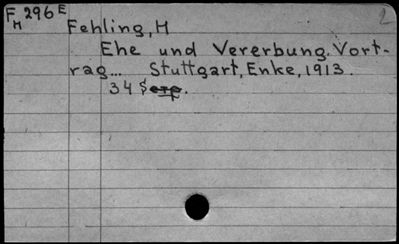 F 296 E 2
M
Fehling, H
Ehe und Vererbung. Vort-
rag... Stuttgart, Enke, 1913.
34 S.